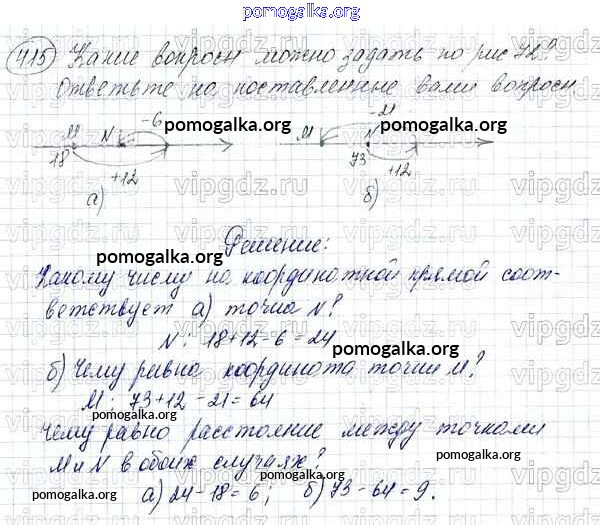 pomogalka.org
415 Какие вопросы можно задать по рис 72?
Ответьте на поставленные вами вопросы
-6 -21
M N pomogalka.org M N pomogalka.org
18 +12 73 +12
а) б)
Решение:
pomogalka.org
Какому числу на координатной прямой соот-
ветствует а) точка N?
N: 18+12-6=24
pomogalka.org
б) Чему равна координата точки M?
M: 73+12-21=64
pomogalka.org
Чему равно расстояние между точками
M и N в обоих случаях?
а) 24-18=6; б) 73-64=9.
pomogalka.org pomogalka.org
vipgdz.ru